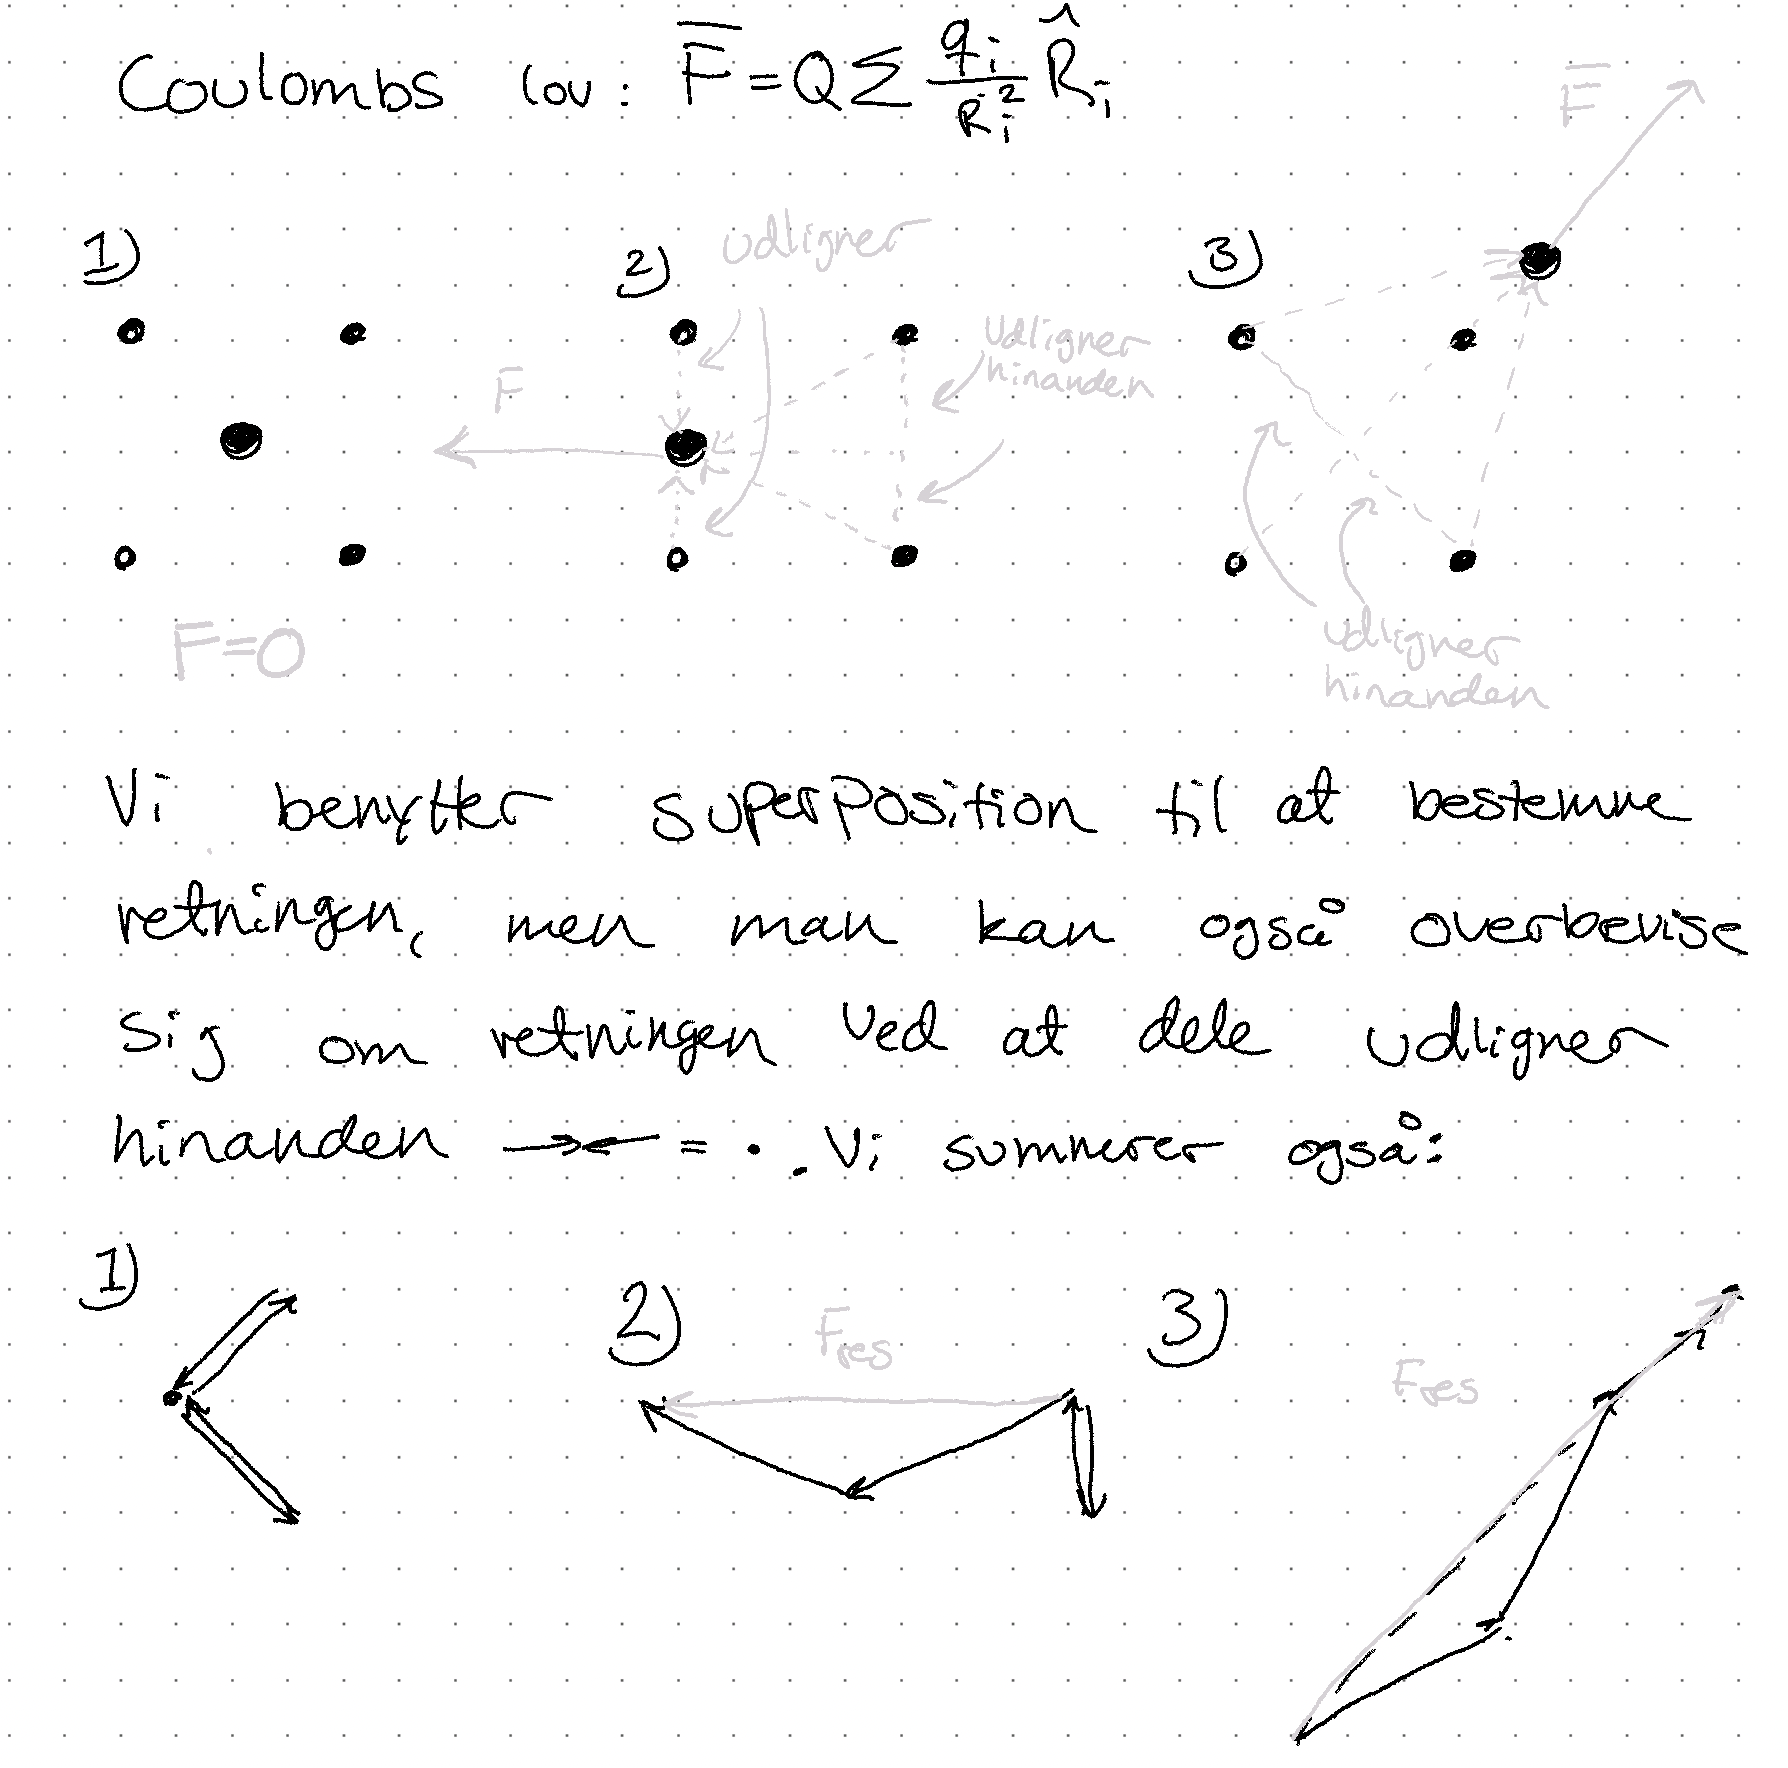 Coulombs lov: F̅ = Q Σ qᵢ/Rᵢ² R̂ᵢ
F̅
1)
2)
udligner
3)
Udligner
hinanden
F̅
F̅=0
udligner
hinanden
Vi benytter superposition til at bestemme
retningen, men man kan også overbevise
sig om retningen ved at dele udligner
hinanden →← = · . Vi summerer også:
1)
2)
Fres
3)
Fres